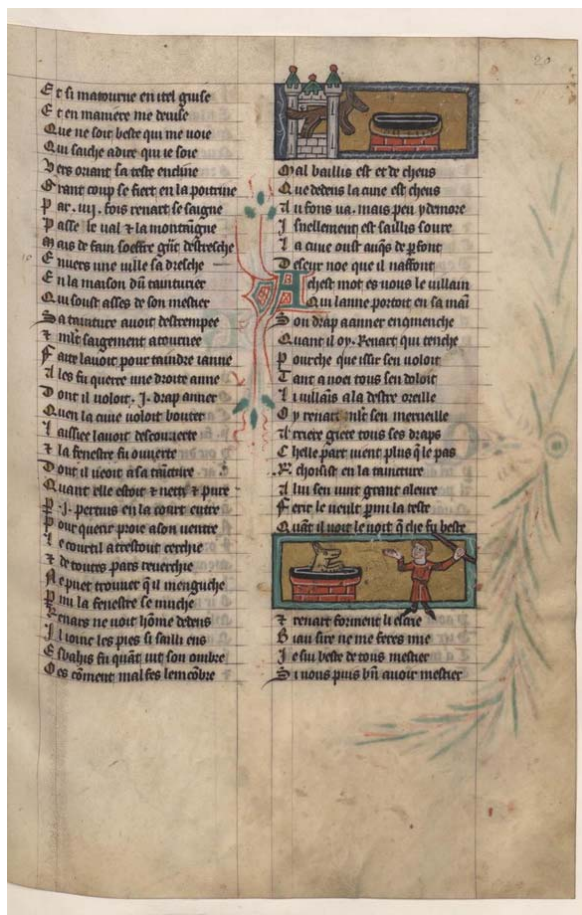 20
Et si matourne en itel guise
Et en maniere me deuise
Que ne soit beste qui me uoie
Qui saiche a dire qui ie soie
Vers oriant sa teste encline
Grant coup se fiert en la poitrine
Par .iiij. fois renart se saigne
Passe le val ⁊ la montaigne
Mais de fain soeffre gñt destresche
Enuers une ville sa dresche
En la maison dũ tainturier
Qui soust asses de son mestier
Sa tainture auoit destrempee
⁊ mlt saigement atournee
Faite lauoit pour taindre ianne
Ales fu querre une droite anne
Dont il uoloit .j. drap anner
Quen la cuue uoloit bouter
laissiee lauoit descouuerte
⁊ la fenestre fu ouuerte
Dont il ueoit a sa tainture
Quant elle estoit ⁊ nette ⁊ pure
P .j. pertuis en la court entre
Pour querir proie a son uentre
Le courtil a trestout cerchie
⁊ de toutes pars reuerchie
Ne puet trouuer q̃ il menguche
Pmi la fenestre se muche
Renars ne uoit hõme dedens
Il ioint les pies si sailli ens
Esbahis fu quãt uit son ombre
Oes cõment malfes lemcõbre
Mal baillis est et decheus
Que dedens la cuue est cheus
Au fons ua. mais peu y demore
Isnellement est saillis soure
La cuue oust auq̃s de pfont
Deseur noe que il naffont
Achest mot es uous le uillain
Qui lanne portoit en sa mai
Son drap a anner enqmenche
Quant il oy Renart qui tenche
Pourche que issir sen uoloit
Tant a noet tous sen doloit
Li uillais a la destre oreille
Oy renart mlt sen merueille
Arriere giete tous ses draps
Chelle part uient plus q̃ le pas
R. choisist en la tainture
A lui sen uint grant aleure
Ferir le ueult pmi la teste
Quãt il uoit le uoit q̃ che fu beste
⁊ renart forment li escrie
Biau sire ne me feres mie
Je sui beste de tous mestier
Si uous puis bñ auoir mestier